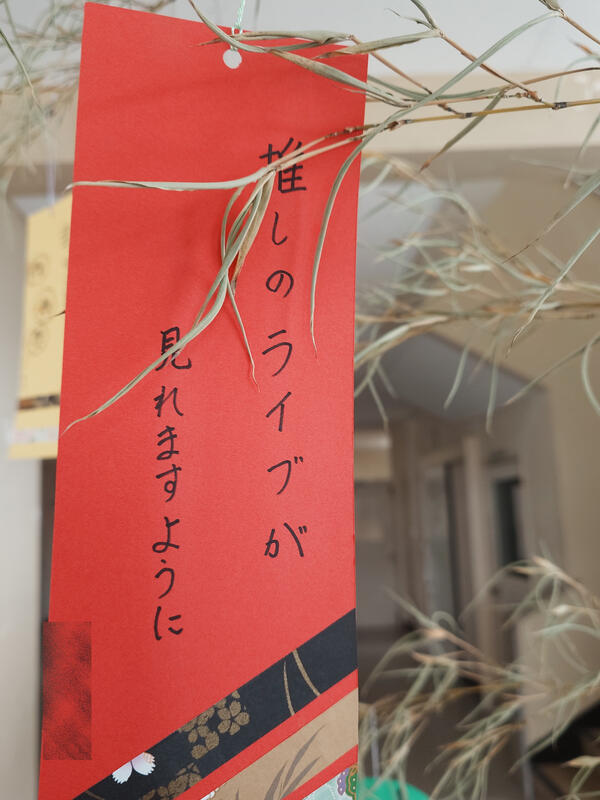 推しのライブが
見れますように